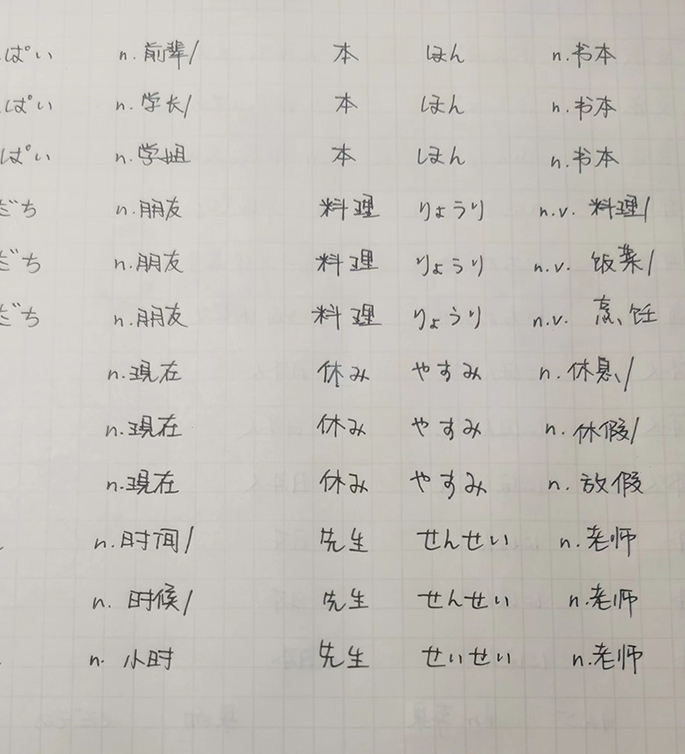 ぱい n. 前辈/ 本 ほん n. 书本
ぱい n. 学长/ 本 ほん n. 书本
ぱい n. 学姐 本 ほん n. 书本
だち n. 朋友 料理 りょうり n.v. 料理/
だち n. 朋友 料理 りょうり n.v. 饭菜/
だち n. 朋友 料理 りょうり n.v. 烹饪
n. 现在 休み やすみ n. 休息/
n. 现在 休み やすみ n. 休假/
n. 现在 休み やすみ n. 放假
n. 时间/ 先生 せんせい n. 老师
n. 时候/ 先生 せんせい n. 老师
n. 小时 先生 せいせい n. 老师